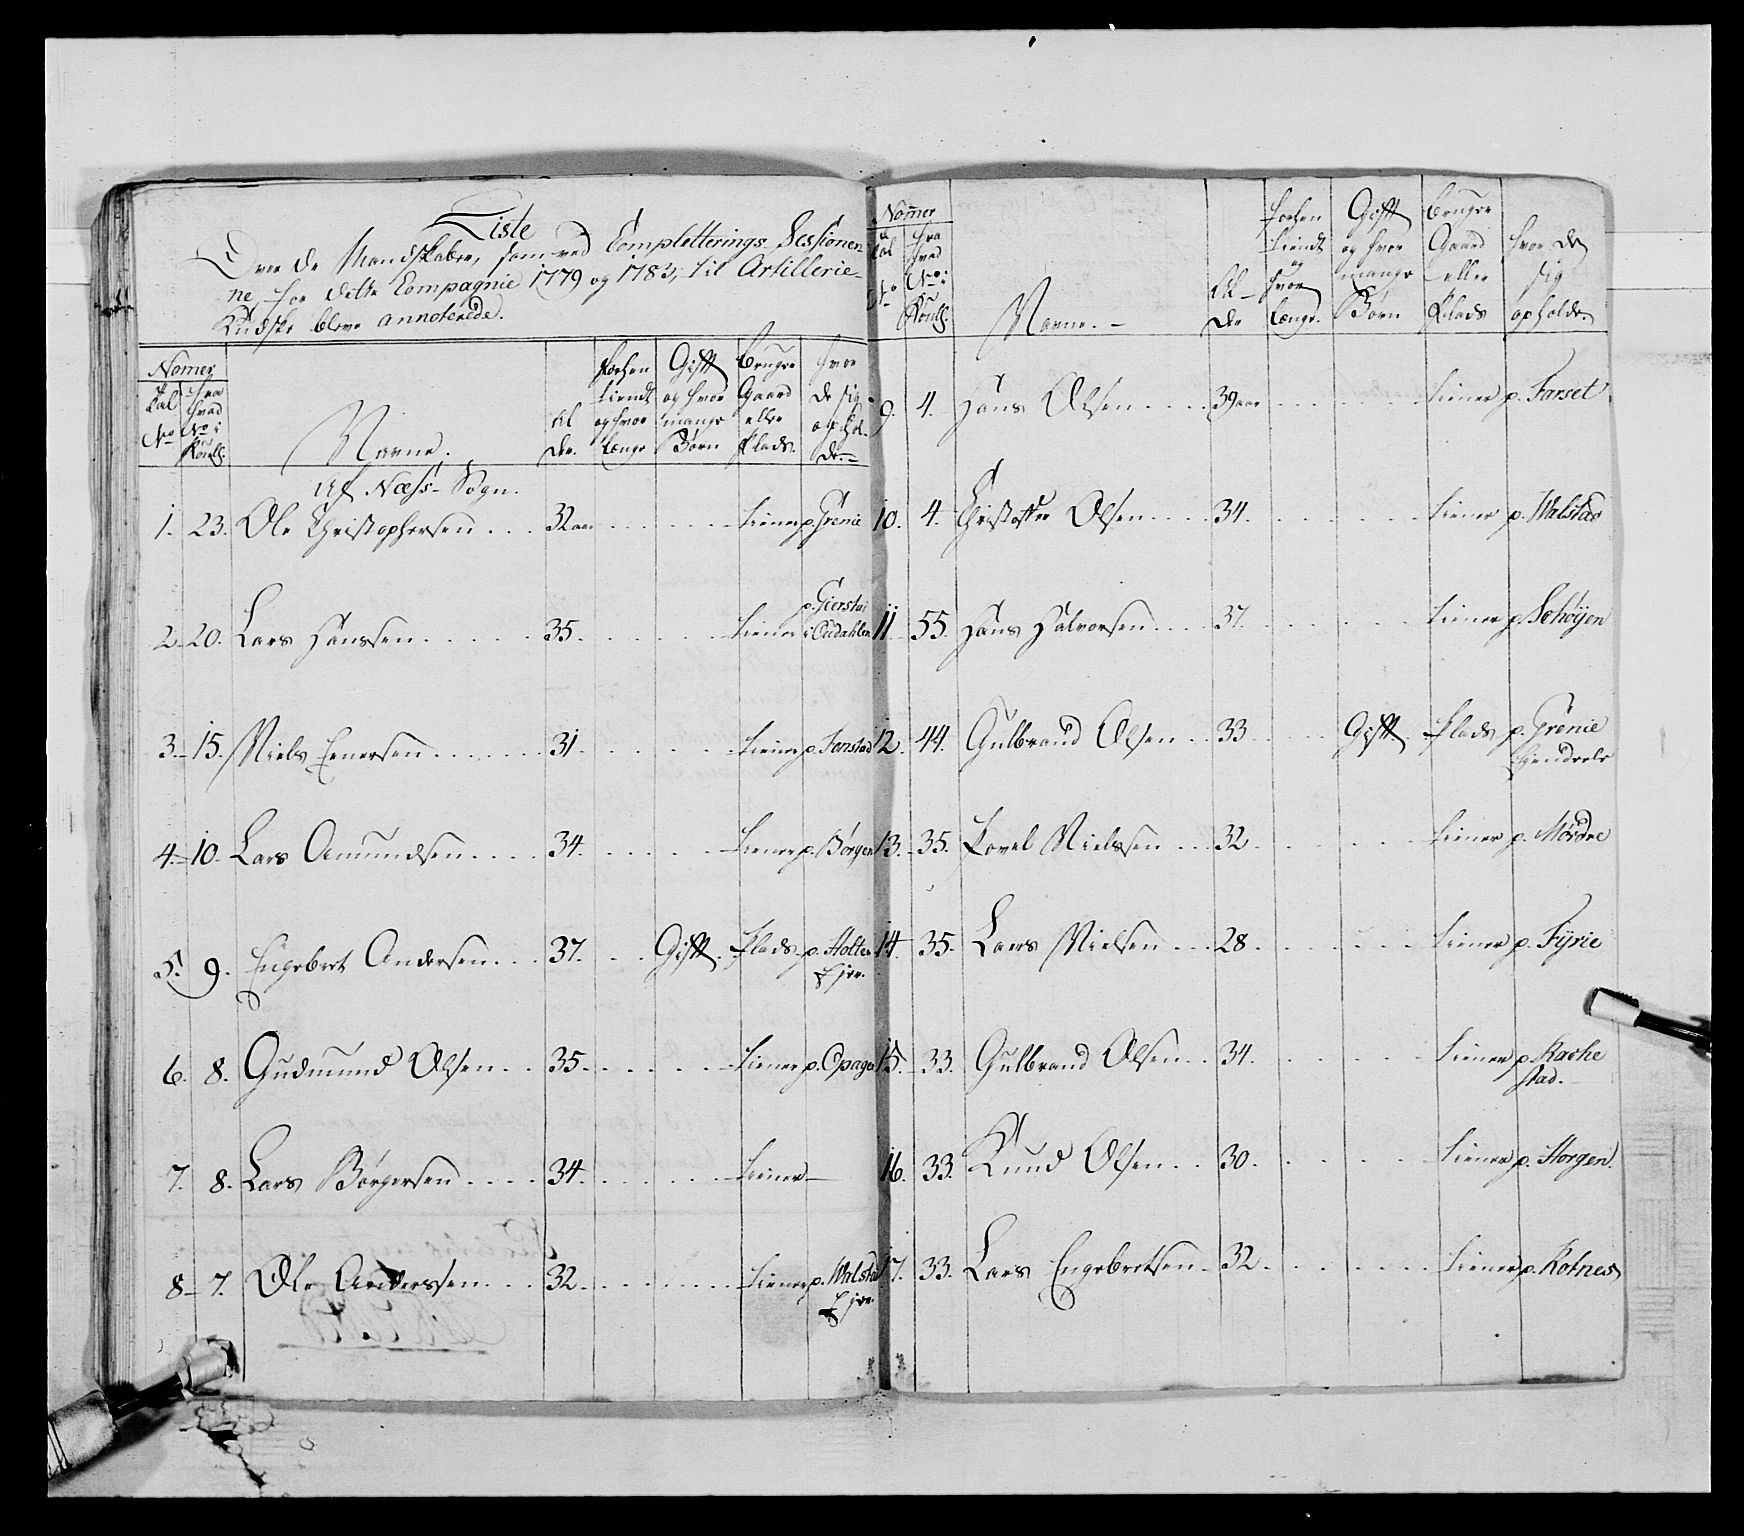 Liste
Over de Mandskaber, som ved Completterings Sessionen
ne for dette Compagnie 1779 og 1783, til Artillerie-
Kudske bleve annoterede.
Nomer
Tal No
fra hvad No i Roull.
Navne.
Al der.
forhen tiendt og hvor længe
Gift og hvor mange Børn
bruger Gaard eller Plads.
hvor de sig ophol- de.
Af Næss Sogn.
1. 23. Ole Christophersen 32 aar tiener p. Grenie
2. 20. Lars Hanssen 35. tiener p. Gierstad i Oudahlen
3. 15. Niels Einersen 31 tiener p. Fonstad
4. 10. Lars Amundsen 34. tiener p. Børgen
5. 9. Engebret Andersen 37. Gift. Plads p. Holter Ejer.
6. 8. Gudmund Olsen 35. tiener p. Opager
7. 8. Lars Børgersen 34. tiener
8. 7. Ole Anderssen 32. tiener p. Walstad Ejer.
Nomer
Tal No
fra hvad No i Roull.
Navne.
Al der
forhen tiendt og hvor længe.
Gift og hvor mange Børn
bruger Gaard eller Plads
hvor de sig opholde.
9. 4. Hans Olsen 39 aar tiener p. Farset
10. 4. Christoffer Olsen 34. tiener p. Walstad
11 55. Hans Halvorsen 37. tiener p. Schøyen
12. 44. Gulbrand Olsen 33 Gift. Plads p. Grenie
13. 35. Povel Nielssen 32 tiener p. Mørdre
14. 35. Lars Nielsen 28 tiener p. Fyrie
15. 33. Gulbrand Olsen 34. tiener p. Rackestad.
16. 33. Knud Olsen 30. tiener p. Horgen.
17. 33. Lars Engebretsen 32. tiener p. Rotnes